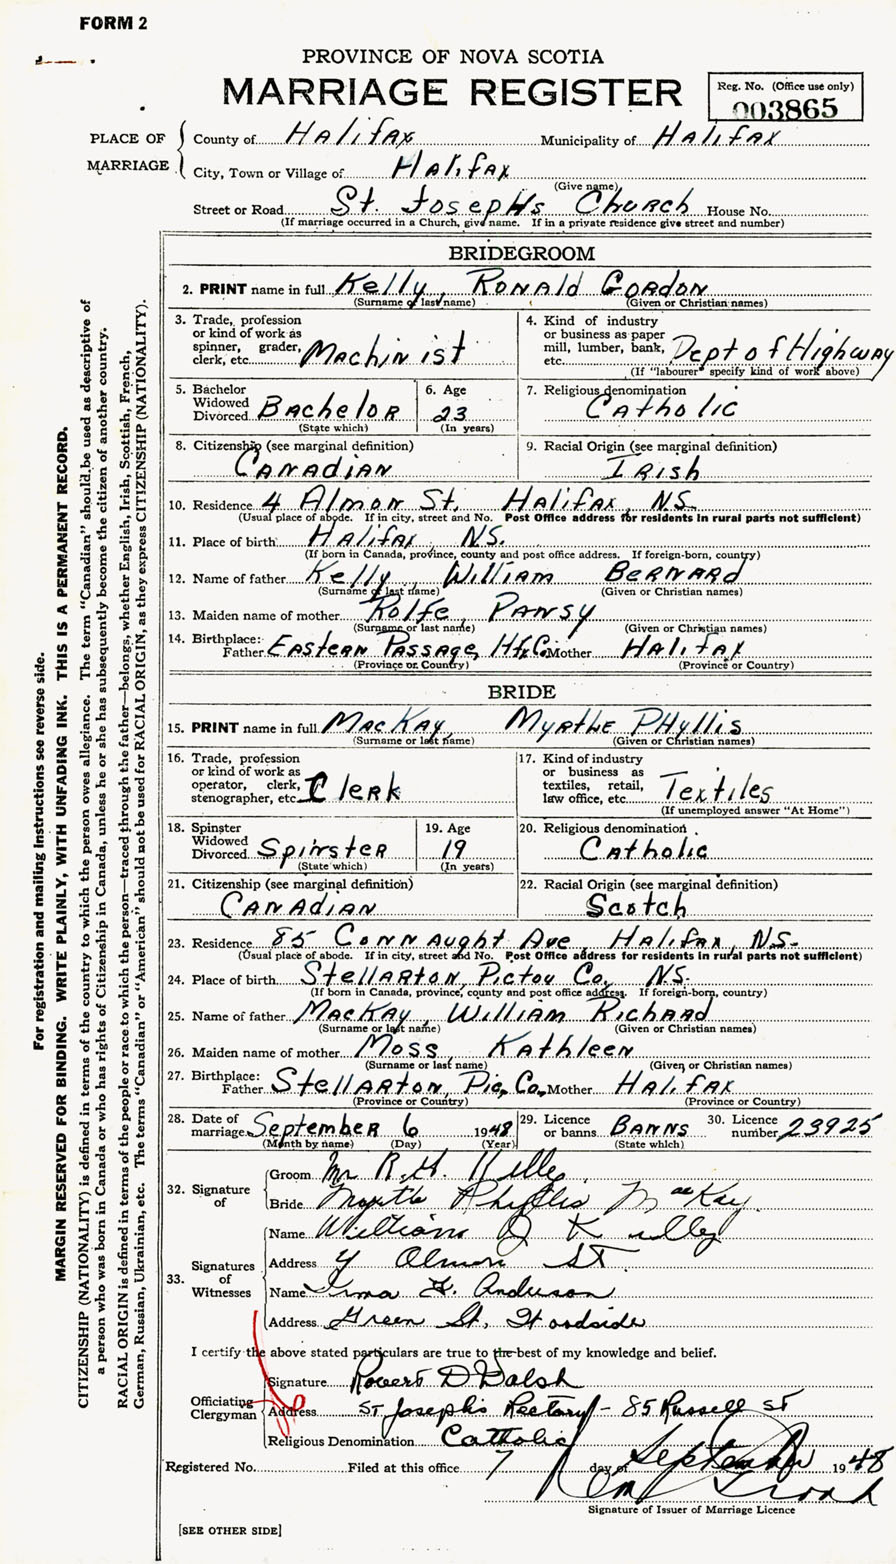 FORM 2
PROVINCE OF NOVA SCOTIA
MARRIAGE REGISTER
Reg. No. (Office use only)
003865
PLACE OF MARRIAGE
County of Halifax Municipality of Halifax
City, Town or Village of Halifax
(Give name)
Street or Road St. Josephs Church House No.
(If marriage occurred in a Church, give name. If in a private residence give street and number)
BRIDEGROOM
2. PRINT name in full Kelly, Ronald Gordon
(Surname of last name) (Given or Christian names)
3. Trade, profession or kind of work as spinner, grader, clerk, etc. Machinist
4. Kind of industry or business as paper mill, lumber, bank, etc. Dept of Highway
(If "labourer" specify kind of work above)
5. Bachelor Widowed Divorced Bachelor
(State which)
6. Age 23
(In years)
7. Religious denomination Catholic
8. Citizenship (see marginal definition) Canadian
9. Racial Origin (see marginal definition) Irish
10. Residence 4 Almon St. Halifax, N.S.
(Usual place of abode. If in city, street and No. Post Office address for residents in rural parts not sufficient)
11. Place of birth Halifax, N.S.
(If born in Canada, province, county and post office address. If foreign-born, country)
12. Name of father Kelly, William Bernard
(Surname of last name) (Given or Christian names)
13. Maiden name of mother Rolfe, Pansy
(Surname or last name) (Given or Christian names)
14. Birthplace: Father Eastern Passage, Hfx Co. Mother Halifax
(Province or Country) (Province or Country)
BRIDE
15. PRINT name in full MacKay, Myrthe Phyllis
(Surname or last name) (Given or Christian names)
16. Trade, profession or kind of work as operator, clerk, stenographer, etc Clerk
17. Kind of industry or business as textiles, retail, law office, etc. Textiles
(If unemployed answer "At Home")
18. Spinster Widowed Divorced Spinster
(State which)
19. Age 19
(In years)
20. Religious denomination Catholic
21. Citizenship (see marginal definition) Canadian
22. Racial Origin (see marginal definition) Scotch
23. Residence 85 Connaught Ave, Halifax, N.S.
(Usual place of abode. If in city, street and No. Post Office address for residents in rural parts not sufficient)
24. Place of birth Stellarton, Pictou Co., N.S.
(If born in Canada, province, county and post office address. If foreign-born, country)
25. Name of father MacKay, William Richard
(Surname or last name) (Given or Christian names)
26. Maiden name of mother Moss, Kathleen
(Surname or last name) (Given or Christian names)
27. Birthplace: Father Stellarton, Pic. Co., Mother Halifax
(Province or Country) (Province or Country)
28. Date of marriage September 6 1948
(Month by name) (Day) (Year)
29. Licence or banns Banns
(State which)
30. Licence number 23925
32. Signature of
Groom Mr R. G. Kelly
Bride Myrtle Phyllis MacKay
33. Signatures of Witnesses
Name William Kelly
Address 4 Almon St.
Name Irma Anderson
Address Green St. Woodside
I certify the above stated particulars are true to the best of my knowledge and belief.
Officiating Clergyman
Signature Robert D Walsh
Address St Joseph's Rectory - 85 Russell St
Religious Denomination Catholic
Registered No. Filed at this office 7 day of September 1948
Signature of Issuer of Marriage Licence
[SEE OTHER SIDE]
For registration and mailing instructions see reverse side.
MARGIN RESERVED FOR BINDING. WRITE PLAINLY, WITH UNFADING INK. THIS IS A PERMANENT RECORD.
CITIZENSHIP (NATIONALITY) is defined in terms of the country to which the person owes allegiance. The term "Canadian" should be used as descriptive of
a person who was born in Canada or who has rights of Citizenship in Canada, unless he or she has subsequently become the citizen of another country.
RACIAL ORIGIN is defined in terms of the people or race to which the person—traced through the father—belongs, whether English, Irish, Scottish, French,
German, Russian, Ukrainian, etc. The terms "Canadian" or "American" should not be used for RACIAL ORIGIN, as they express CITIZENSHIP (NATIONALITY).